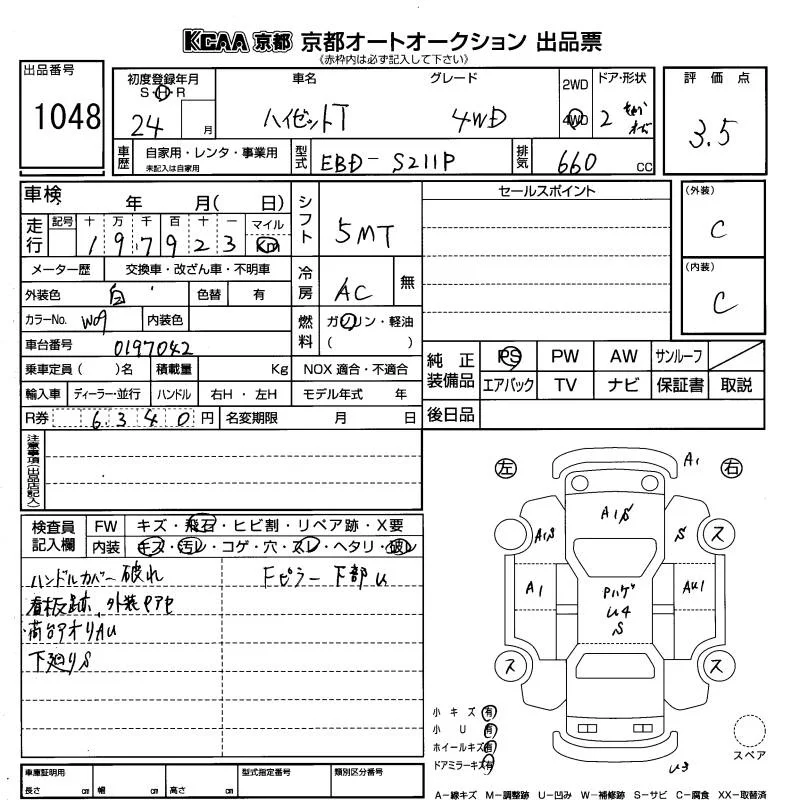 KCAA 京都 京都オートオークション 出品票
(赤枠内は必ず記入して下さい)
出品番号
1048
初度登録年月
S・H・R
24 月
車名
ハイゼットT
グレード
4WD
2WD
4WD
ドア・形状
2
評価点
3.5
車歴
自家用・レンタ・事業用
未記入は自家用
型式
EBD-S211P
排気
660 CC
車検 年 月( 日)
走行
記号 十 万 千 百 十 一 マイル
1 9 7 9 2 3 km
シフト
5MT
セールスポイント
(外装)
C
(内装)
C
メーター歴 交換車・改ざん車・不明車
外装色 白 色替 有
冷房
AC 無
カラーNo. W09 内装色
燃料
ガソリン・軽油
( )
車台番号 0197042
乗車定員( )名 積載量 Kg NOX 適合・不適合
輸入車 ディーラー・並行 ハンドル 右H・左H モデル年式 年
R券 6 3 4 0 円 名変期限 月 日
純正装備品
PS PW AW サンルーフ
エアバック TV ナビ 保証書 取説
後日品
注意事項(出品店記入)
検査員記入欄
FW キズ・飛石・ヒビ割・リペア跡・X要
内装 キズ・汚レ・コゲ・穴・スレ・ヘタリ・破レ
ハンドルカバー破れ
Fピラー下部U
看板跡、外装クアセ
荷台アオリAU
下廻りS
左 右
A1
A1S
A1S S ス
A1 Pハゲ AU1
U4
S
ス ス
小キズ 有
小U 有
ホイールキズ 有
ドアミラーキズ 有
U3
スペア
車庫証明用
長さ cm 幅 cm 高さ cm
型式指定番号
類別区分番号
A−線キズ M−調整跡 U−凹み W−補修跡 S−サビ C−腐食 XX−取替済